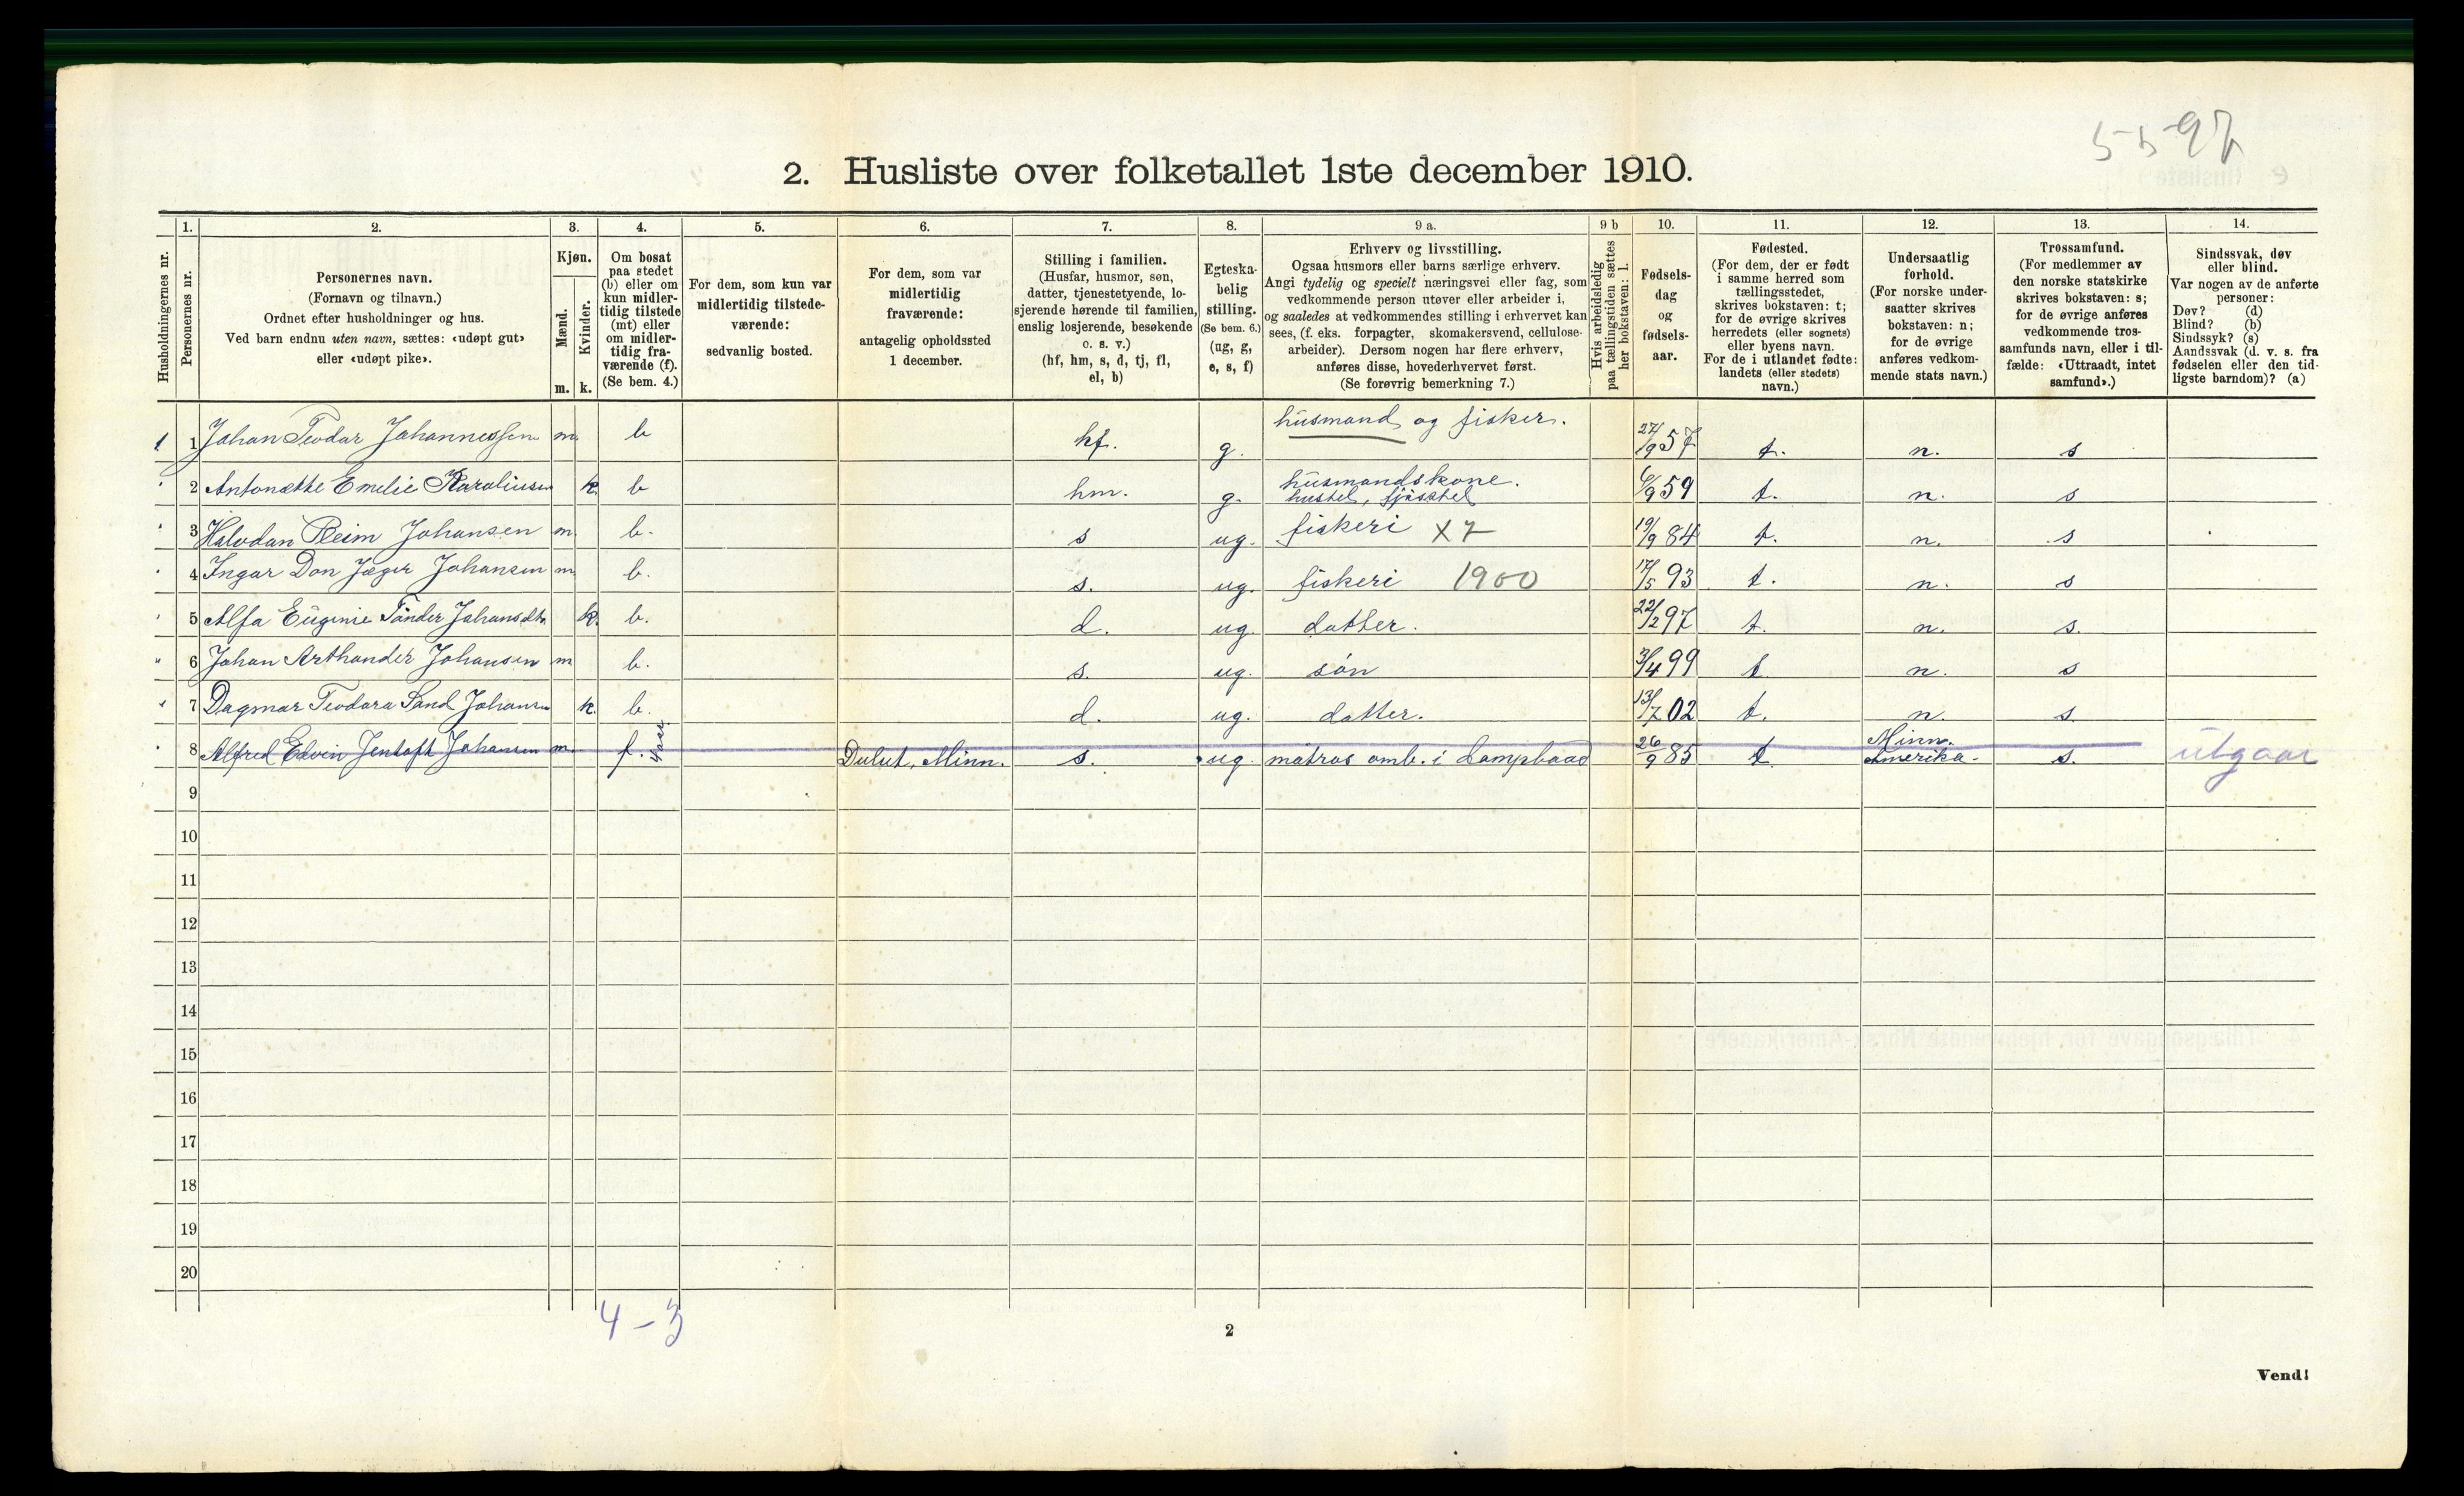 5-5-97
2. Husliste over folketallet 1ste december 1910.
Husholdningernes nr.
1.
Personernes nr.
2.
Personernes navn.
(Fornavn og tilnavn.)
Ordnet efter husholdninger og hus.
Ved barn endnu uten navn, sættes: «udøpt gut»
eller «udøpt pike».
3.
Kjøn.
Mænd.
Kvinder.
m. k.
4.
Om bosat
paa stedet
(b) eller om
kun midler-
tidig tilstede
(mt) eller
om midler-
tidig fra-
værende (f).
(Se bem. 4.)
5.
For dem, som kun var
midlertidig tilstede-
værende:
sedvanlig bosted.
6.
For dem, som var
midlertidig
fraværende:
antagelig opholdssted
1 december.
7.
Stilling i familien.
(Husfar, husmor, søn,
datter, tjenestetyende, lo-
sjerende hørende til familien,
enslig losjerende, besøkende
o. s. v.)
(hf, hm, s, d, tj, fl,
el, b)
8.
Egteska-
belig
stilling.
(Se bem. 6.)
(ug, g,
e, s, f)
9 a.
Erhverv og livsstilling.
Ogsaa husmors eller barns særlige erhverv.
Angi tydelig og specielt næringsvei eller fag, som
vedkommende person utøver eller arbeider i,
og saaledes at vedkommendes stilling i erhvervet kan
sees, (f. eks. forpagter, skomakersvend, cellulose-
arbeider). Dersom nogen har flere erhverv,
anføres disse, hovederhvervet først.
(Se forøvrig bemerkning 7.)
9 b
Hvis arbeidsledig
paa tællingstiden sættes
her bokstaven: l.
10.
Fødsels-
dag
og
fødsels-
aar.
11.
Fødested.
(For dem, der er født
i samme herred som
tællingsstedet,
skrives bokstaven: t;
for de øvrige skrives
herredets (eller sognets)
eller byens navn.
For de i utlandet fødte:
landets (eller stedets)
navn.)
12.
Undersaatlig
forhold.
(For norske under-
saatter skrives
bokstaven: n;
for de øvrige
anføres vedkom-
mende stats navn.)
13.
Trossamfund.
(For medlemmer av
den norske statskirke
skrives bokstaven: s;
for de øvrige anføres
vedkommende tros-
samfunds navn, eller i til-
fælde: «Uttraadt, intet
samfund».)
14.
Sindssvak, døv
eller blind.
Var nogen av de anførte
personer:
Døv? (d)
Blind? (b)
Sindssyk? (s)
Aandssvak (d. v. s. fra
fødselen eller den tid-
ligste barndom)? (a)
1 1 Johan Teodar Johannessen m. b hf. g. husmand og fisker. 27/9 57 t. n. s
" 2 Antonette Emelie Karoliusen k. b hm. g. husmandskone. 6/9 59 t. n. s
hustel, fjøsstel
" 3 Halvdan Reim Johansen m. b. s ug. fiskeri X7 19/9 84 t. n. s
" 4 Ingar Don Jæger Johansen m. b. s. ug. fiskeri 1900 17/5 93 t. n. s
" 5 Alfa Eugenie Tander Johansdtr. k. b. d. ug. datter. 22/2 97 t. n. s.
" 6 Johan Arthander Johansen m b. s. ug. søn 3/4 99 t n. s
" 7 Dagmar Teodora Sand Johansen k. b. d. ug. datter. 13/7 02 t. n. s.
" 8 Alfred Edvin Jentoft Johansen m. f. Dulut, Minn. s. ug. matros omb. i Dampbaad 26/9 85 t Minn. Amerika. s. utgaar
9
10
11
12
13
14
15
16
17
18
19
20
4-3
2
Vend!